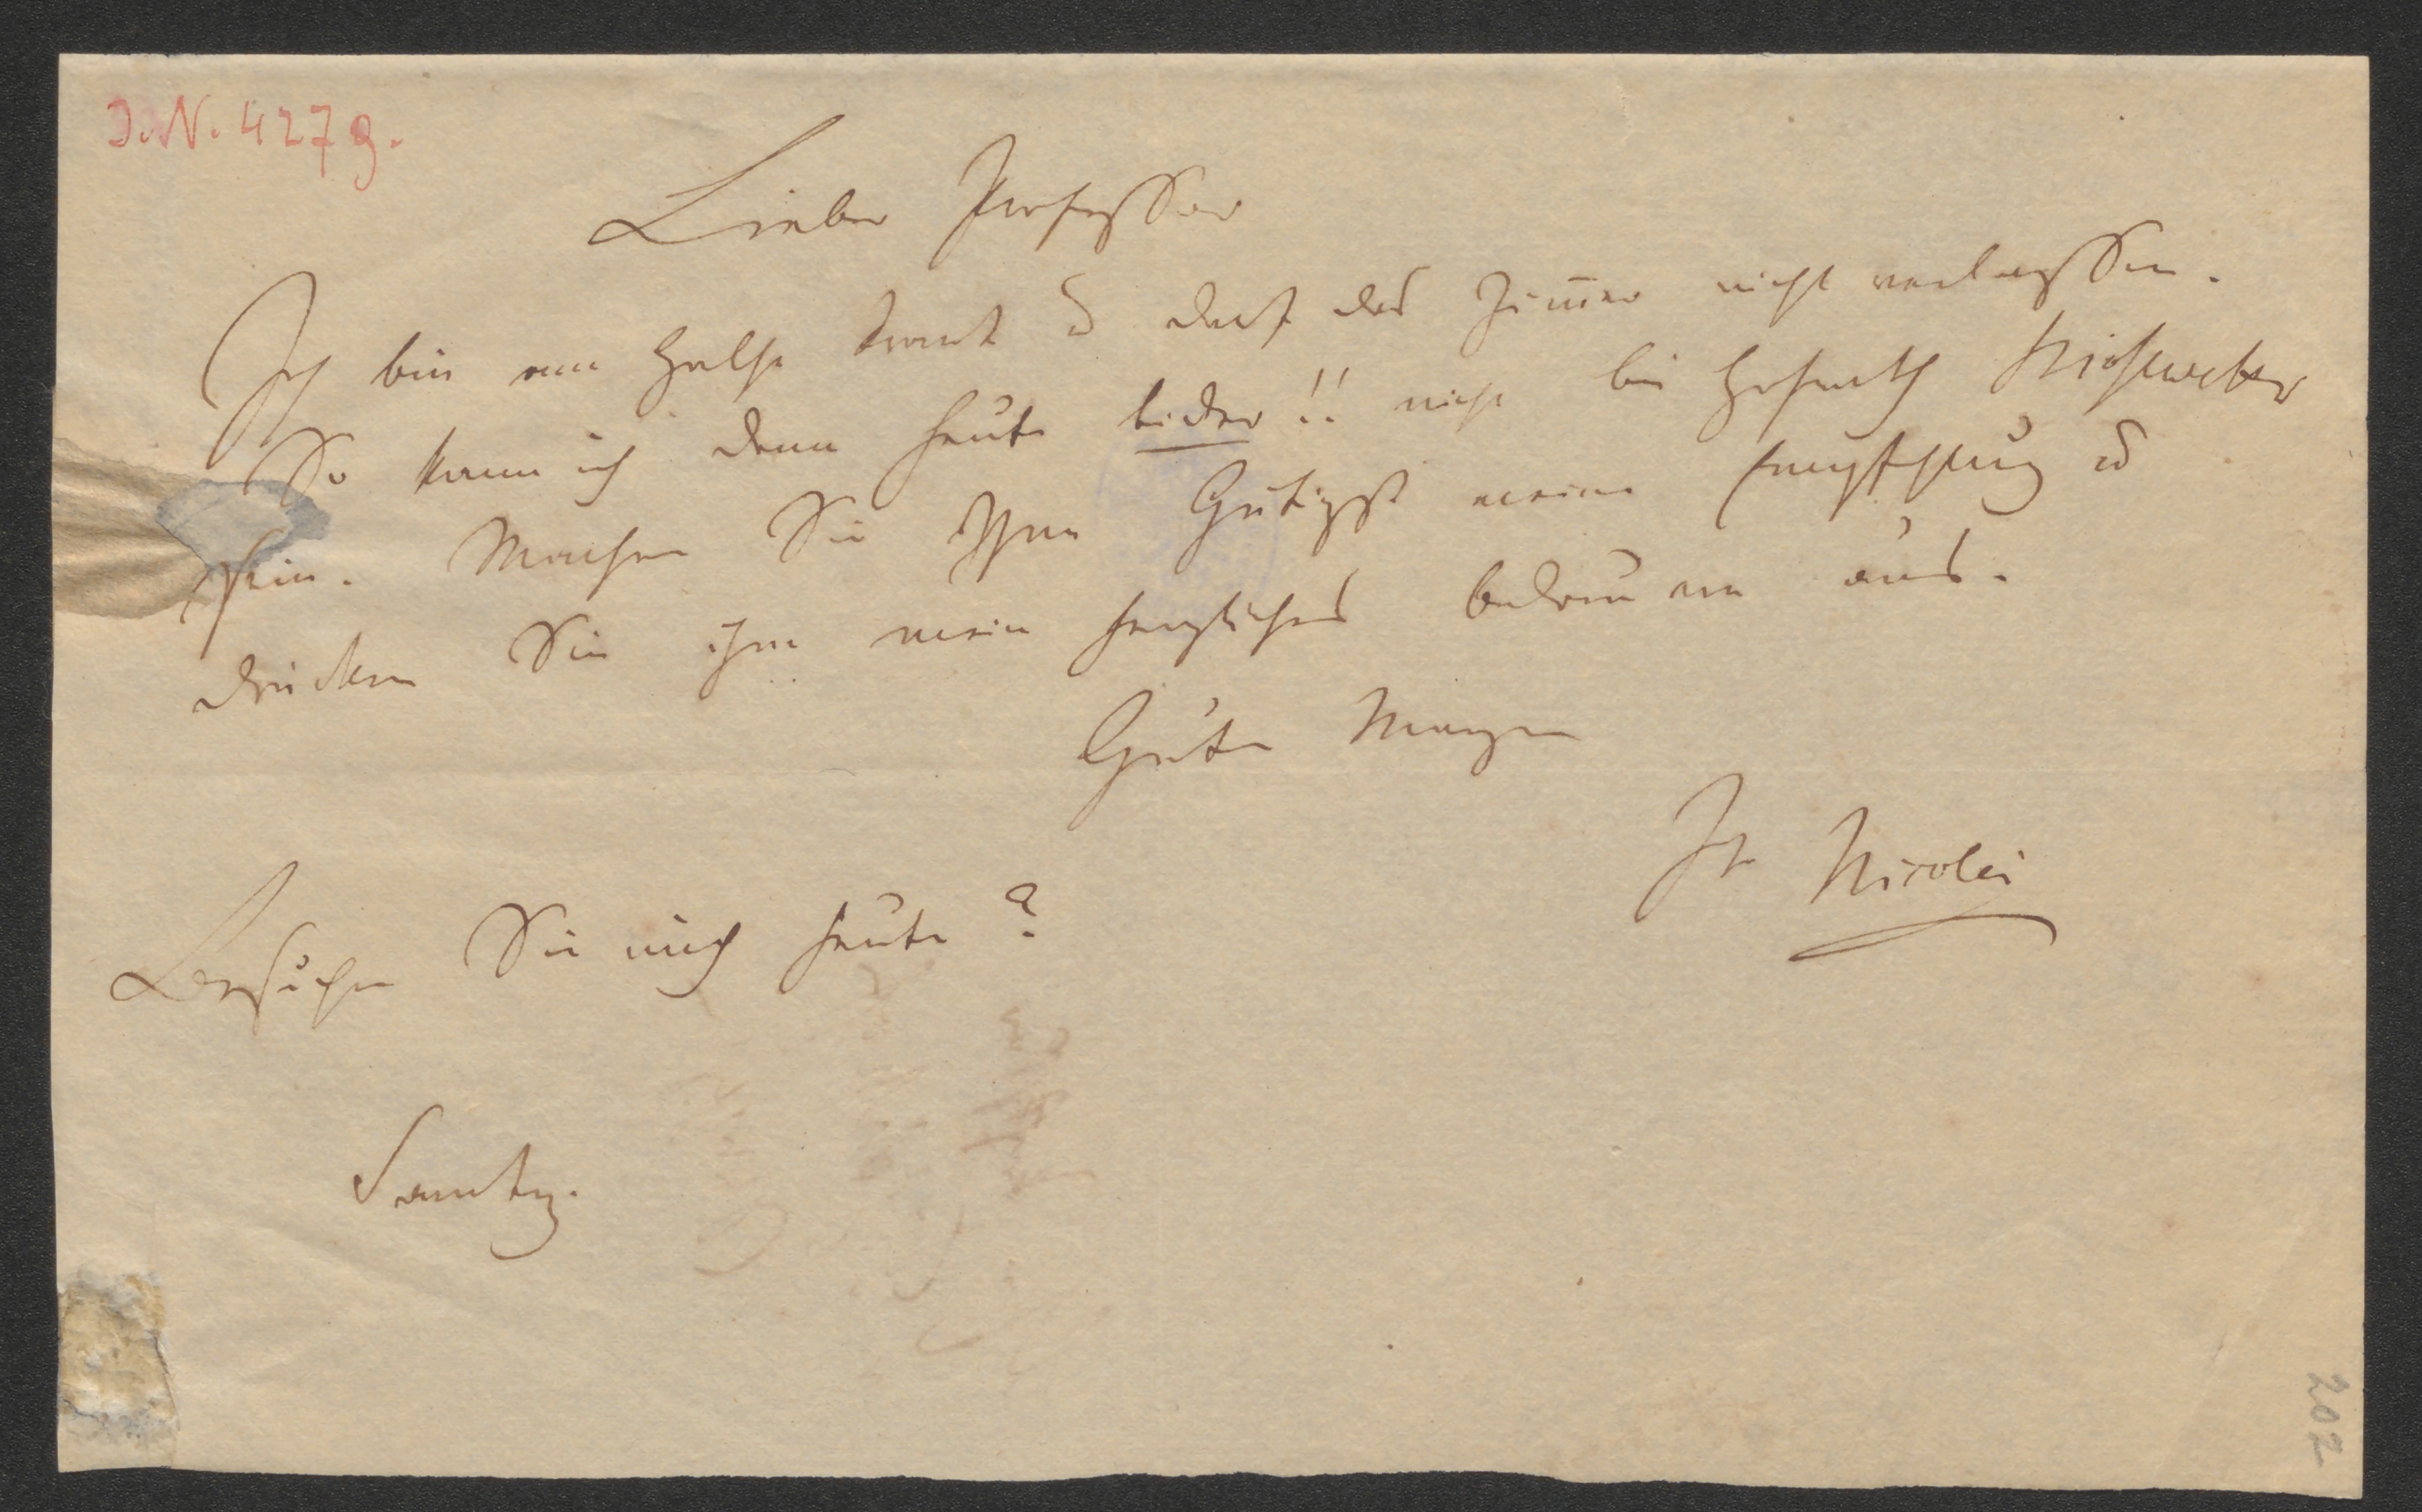 J.N. 4279.
Lieber Professor
Ich bin am Halse krank u darf das Zimmer nicht verlassen.
So kann ich denn heute leider!! nicht bei Hofrath Kiesewetter
sein. Machen Sie Ihm Gütigst meine Empfehlung u
drücken Sie ihm mein herzliches bedauern aus.
Guten Morgen
Ihr Nicolai
Besuchen Sie mich heute?
Samstag.
202